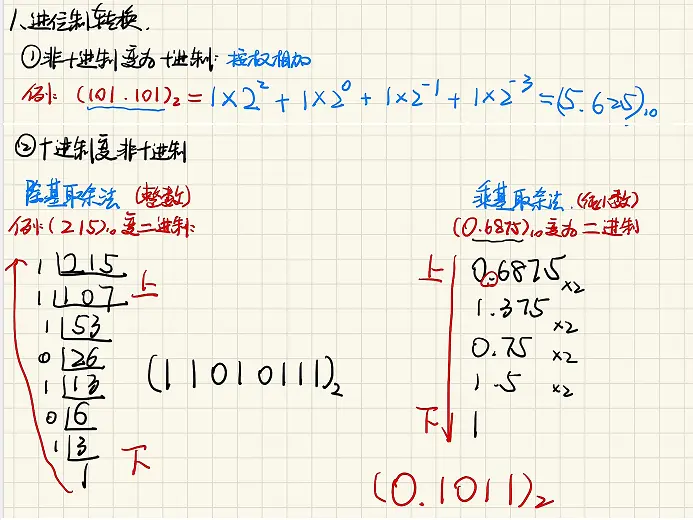 1、进位制转换.
①非十进制变为十进制: 按权相加
例: (101.101)₂ = 1×2² + 1×2⁰ + 1×2⁻¹ + 1×2⁻³ = (5.625)₁₀
②十进制变非十进制
除基取余法 (整数)
例: (215)₁₀ 变二进制:
1 215
1 107 上
1 53
0 26
1 13
0 6
1 3 下
1
(11010111)₂
乘基取余法. (纯小数)
(0.6875)₁₀ 变为二进制
上 0.6875 ×2
1.375 ×2
0.75 ×2
1.5 ×2
下 1
(0.1011)₂